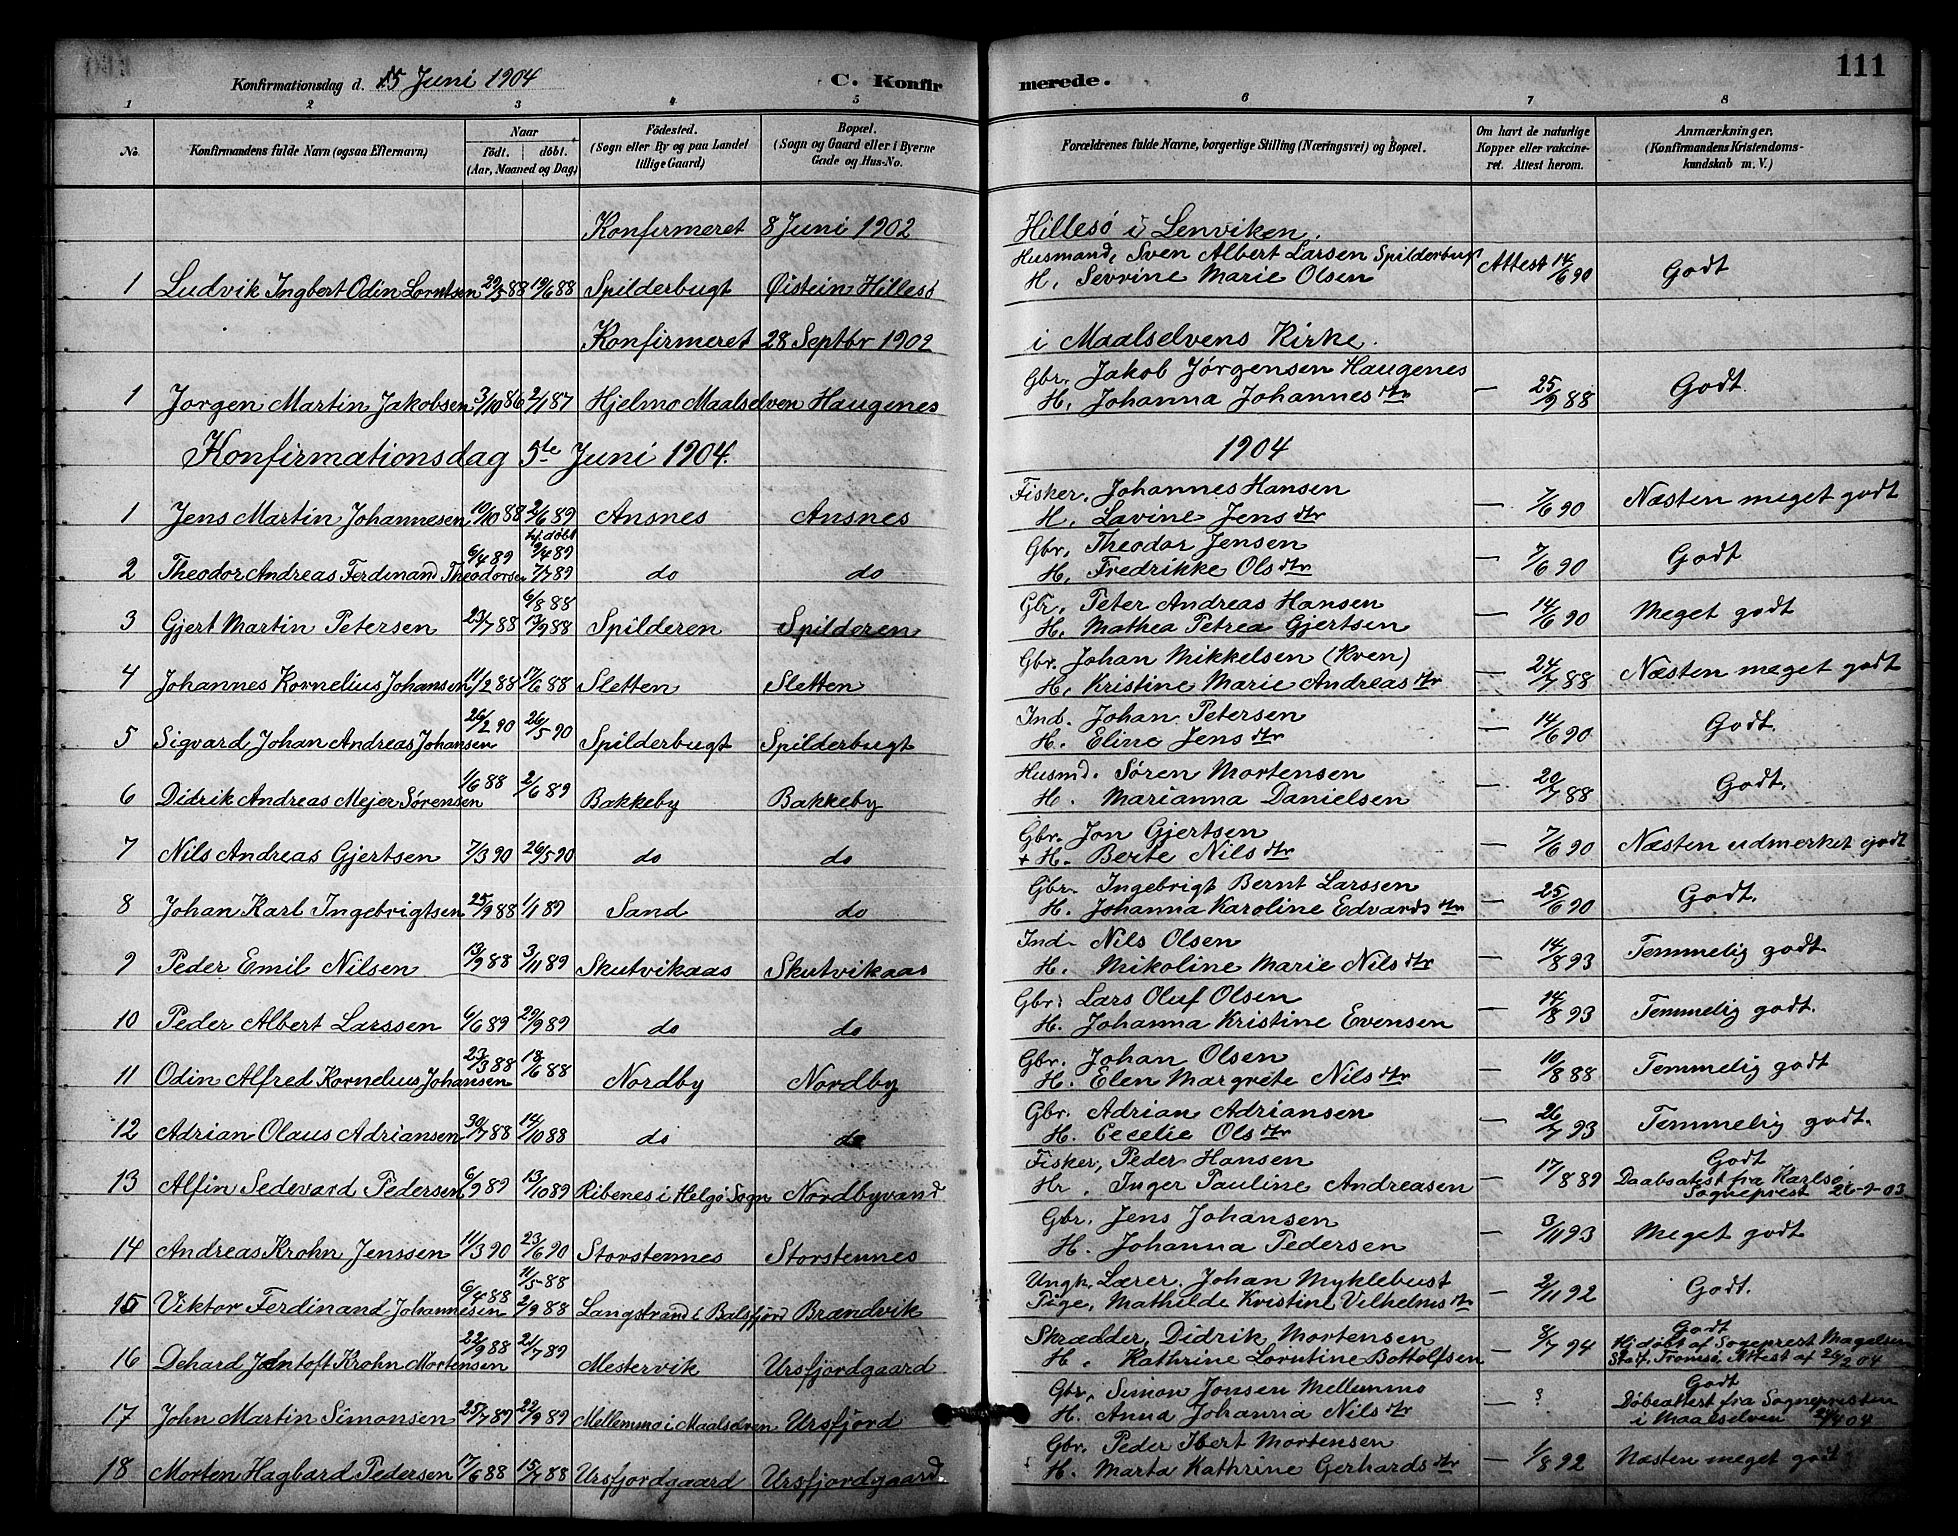 Konfirmationsdag d. 5 Juni 1904 C. Konfirmerede. 111
1 2 3 4 5 6 7 8
No. Konfirmandens fulde Navn (ogsaa Efternavn) Naar født. døbt. (Aar, Maaned og Dag) Födested. (Sogn eller By og paa Landet tillige Gaard) Bopæl. (Sogn og Gaard eller i Byerne Gade og Hus-No. Forældrenes fulde Navne, borgerlige Stilling (Næringsvei) og Bopæl. Om havt de naturlige Kopper eller vakcineret. Attest herom. Anmærkninger. (Konfirmandens Kristendomskundskab m. V.)
Konfirmeret 8 Juni 1902 Hillesø i Lenviken.
1 Ludvik Ingbert Odin Lorntsen 29/3 88 19/6 88 Spilderbugt Øistein Hillesø Husmand, Sven Albert Larsen Spilderbugt H, Sevrine Marie Olsen Attest 14/6 90 Godt
Konfirmeret 28 Septbr 1902 i Maalselvens Kirke.
1 Jørgen Martin Jakobsen 3/10 86 2/1 87 Hjelmo Maalselven Haugenes Gbr. Jakob Jørgensen Haugenes H, Johanna Johannesdtr — 25/9 88 Godt.
Konfirmationsdag 5te Juni 1904. 1904
1 Jens Martin Johannesen 10/10 88 2/6 89 Ansnes Ansnes Fisker, Johannes Hansen H, Lavine Jensdtr — 7/6 90 Næsten meget godt
2 Theodor Andreas Ferdinand Theodorsen 6/4 89 hj. døbt 9/4 89 7/7 89 do do Gbr, Theodor Jensen H, Fredrikke Olsdtr — 7/6 90 Godt
3 Gjert Martin Petersen 23/7 88 6/8 88 13/9 88 Spilderen Spilderen Gbr, Peter Andreas Hansen H, Mathea Petrea Gjertsen — 14/6 90 Meget godt
4 Johannes Kornelius Johansen 11/2 88 17/6 88 Sletten Sletten Gbr. Johan Mikkelsen (Kven) H, Kristine Marie Andreasdtr — 24/7 88 Næsten meget godt
5 Sigvard Johan Andreas Johansen 26/2 90 26/5 90 Spilderbugt Spilderbugt Ind. Johan Petersen H. Eline Jensdtr — 14/6 90 Godt.
6 Didrik Andreas Mejer Sørensen 1/6 88 2/6 89 Bakkeby Bakkeby Husmd. Søren Mortensen H. Marianna Danielsen — 20/7 88 Godt.
7 Nils Andreas Gjertsen 7/3 90 26/5 90 do do Gbr. Jon Gjertsen + H. Berte Nilsdtr — 7/6 90 Næsten udmerket godt
8 Johan Karl Ingebrigtsen 25/9 88 1/1 89 Sand do Gbr. Ingebrigt Bernt Larssen H. Johanna Karoline Edvardsdtr — 25/6 90 Godt.
9 Peder Emil Nilsen 13/9 88 3/11 89 Skutvikaas Skutvikaas Ind. Nils Olsen H. Mikoline Marie Nilsdtr — 14/8 93 Temmelig godt.
10 Peder Albert Larssen 6/6 89 29/9 89 do do Gbr. Lars Oluf Olsen H. Johanna Kristine Evensen — 14/8 93 Temmelig godt.
11 Odin Alfred Kornelius Johansen 23/3 88 18/6 88 Nordby Nordby Gbr. Johan Olsen H. Elen Margrete Nilsdtr — 10/8 88 Temmelig godt
12 Adrian Olaus Adriansen 30/7 88 14/10 88 do do Gbr. Adrian Adriansen H. Cecelie Olsdtr — 26/7 93 Temmelig godt.
13 Alfin Sedevard Pedersen 6/9 89 13/10 89 Ribenes i Helgø Sogn Nordbyvand Fisker, Peder Hansen Hr, Inger Pauline Andreasen — 17/8 89 Godt Daabsatest fra Karlsø Sogneprest 26-9-03
14 Andreas Krohn Jenssen 11/3 90 23/6 90 Storstennes Storstennes Gbr. Jens Johansen H. Johanna Pedersen — 3/11 93 Meget godt
15 Viktor Ferdinand Johannesen 6/4 88 11/5 88 2/9 88 Langstrand i Balsfjord Brændvik Ungk. Lærer. Johan Myklebust Pige, Mathilde Kristine Vilhelmsdtr — 2/11 92 Godt.
16 Dehard Jentoft Krohn Mortensen 22/9 88 21/7 89 Mestervik Ursfjordgaard Skrædder, Didrik Mortensen H, Kathrine Lorntine Bottolfsen — 8/7 94 Godt Hjdøbt af Sogneprest Magelsen Attest af
17 John Martin Simonsen 25/7 89 22/9 89 Mellemmo i Maalselven Ursfjord Gbr, Simon Jonsen Mellemmo H. Anna Johanna Nilsdtr — ? Godt Døbeattest fra Sognepresten i Maalselven
18 Morten Hagbard Pedersen 7/6 88 15/7 88 Ursfjordgaard Ursfjordgaard Gbr. Peder Ibert Mortensen H. Marta Kathrine Gerhardsdtr — 1/8 92 Næsten meget godt